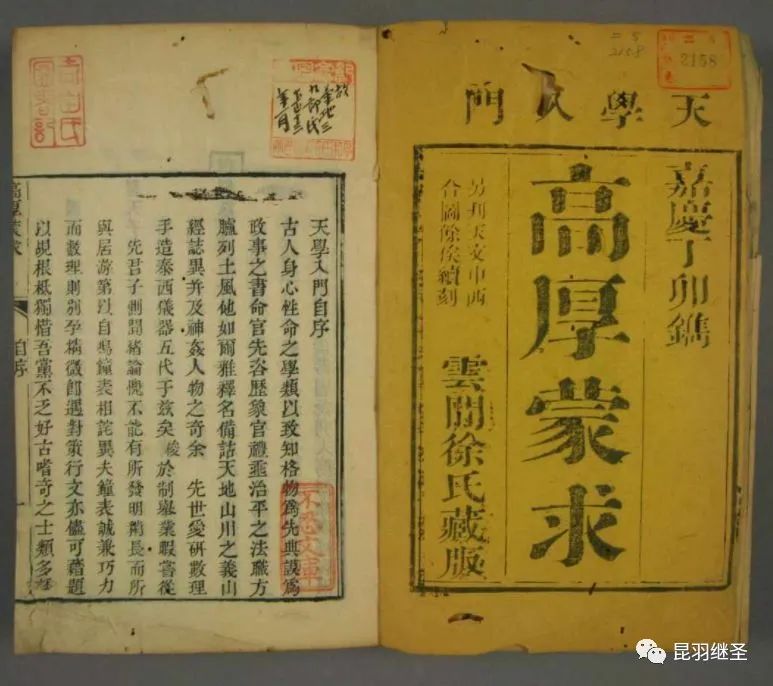 天學入門
嘉慶丁卯鐫
高厚蒙求
另刋天文中西
合圖餘俟續刻
雲間徐氏藏版
2158
2158
天學入門自序
古人身心性命之學類以致知格物爲先典謨爲
政事之書命官先咨歷象官禮亟治平之法職方
臚列土風他如爾雅釋名備詁天地山川之義山
經誌異并及神姦人物之奇余 先世愛硏數理
手造泰西儀器五代于兹矣 俊於制舉業暇嘗從
先君子側聞緒論愧不能有所發明長而所
與居游第以自鳴鐘表相詫異夫鐘表誠兼巧力
而數理則別孕搆微卽遇對策行文亦儘可藉題
以覘根柢獨惜吾黨不乏好古嗜奇之士類多
高厚蒙求
自序
一
不忍文庫
昆羽继圣